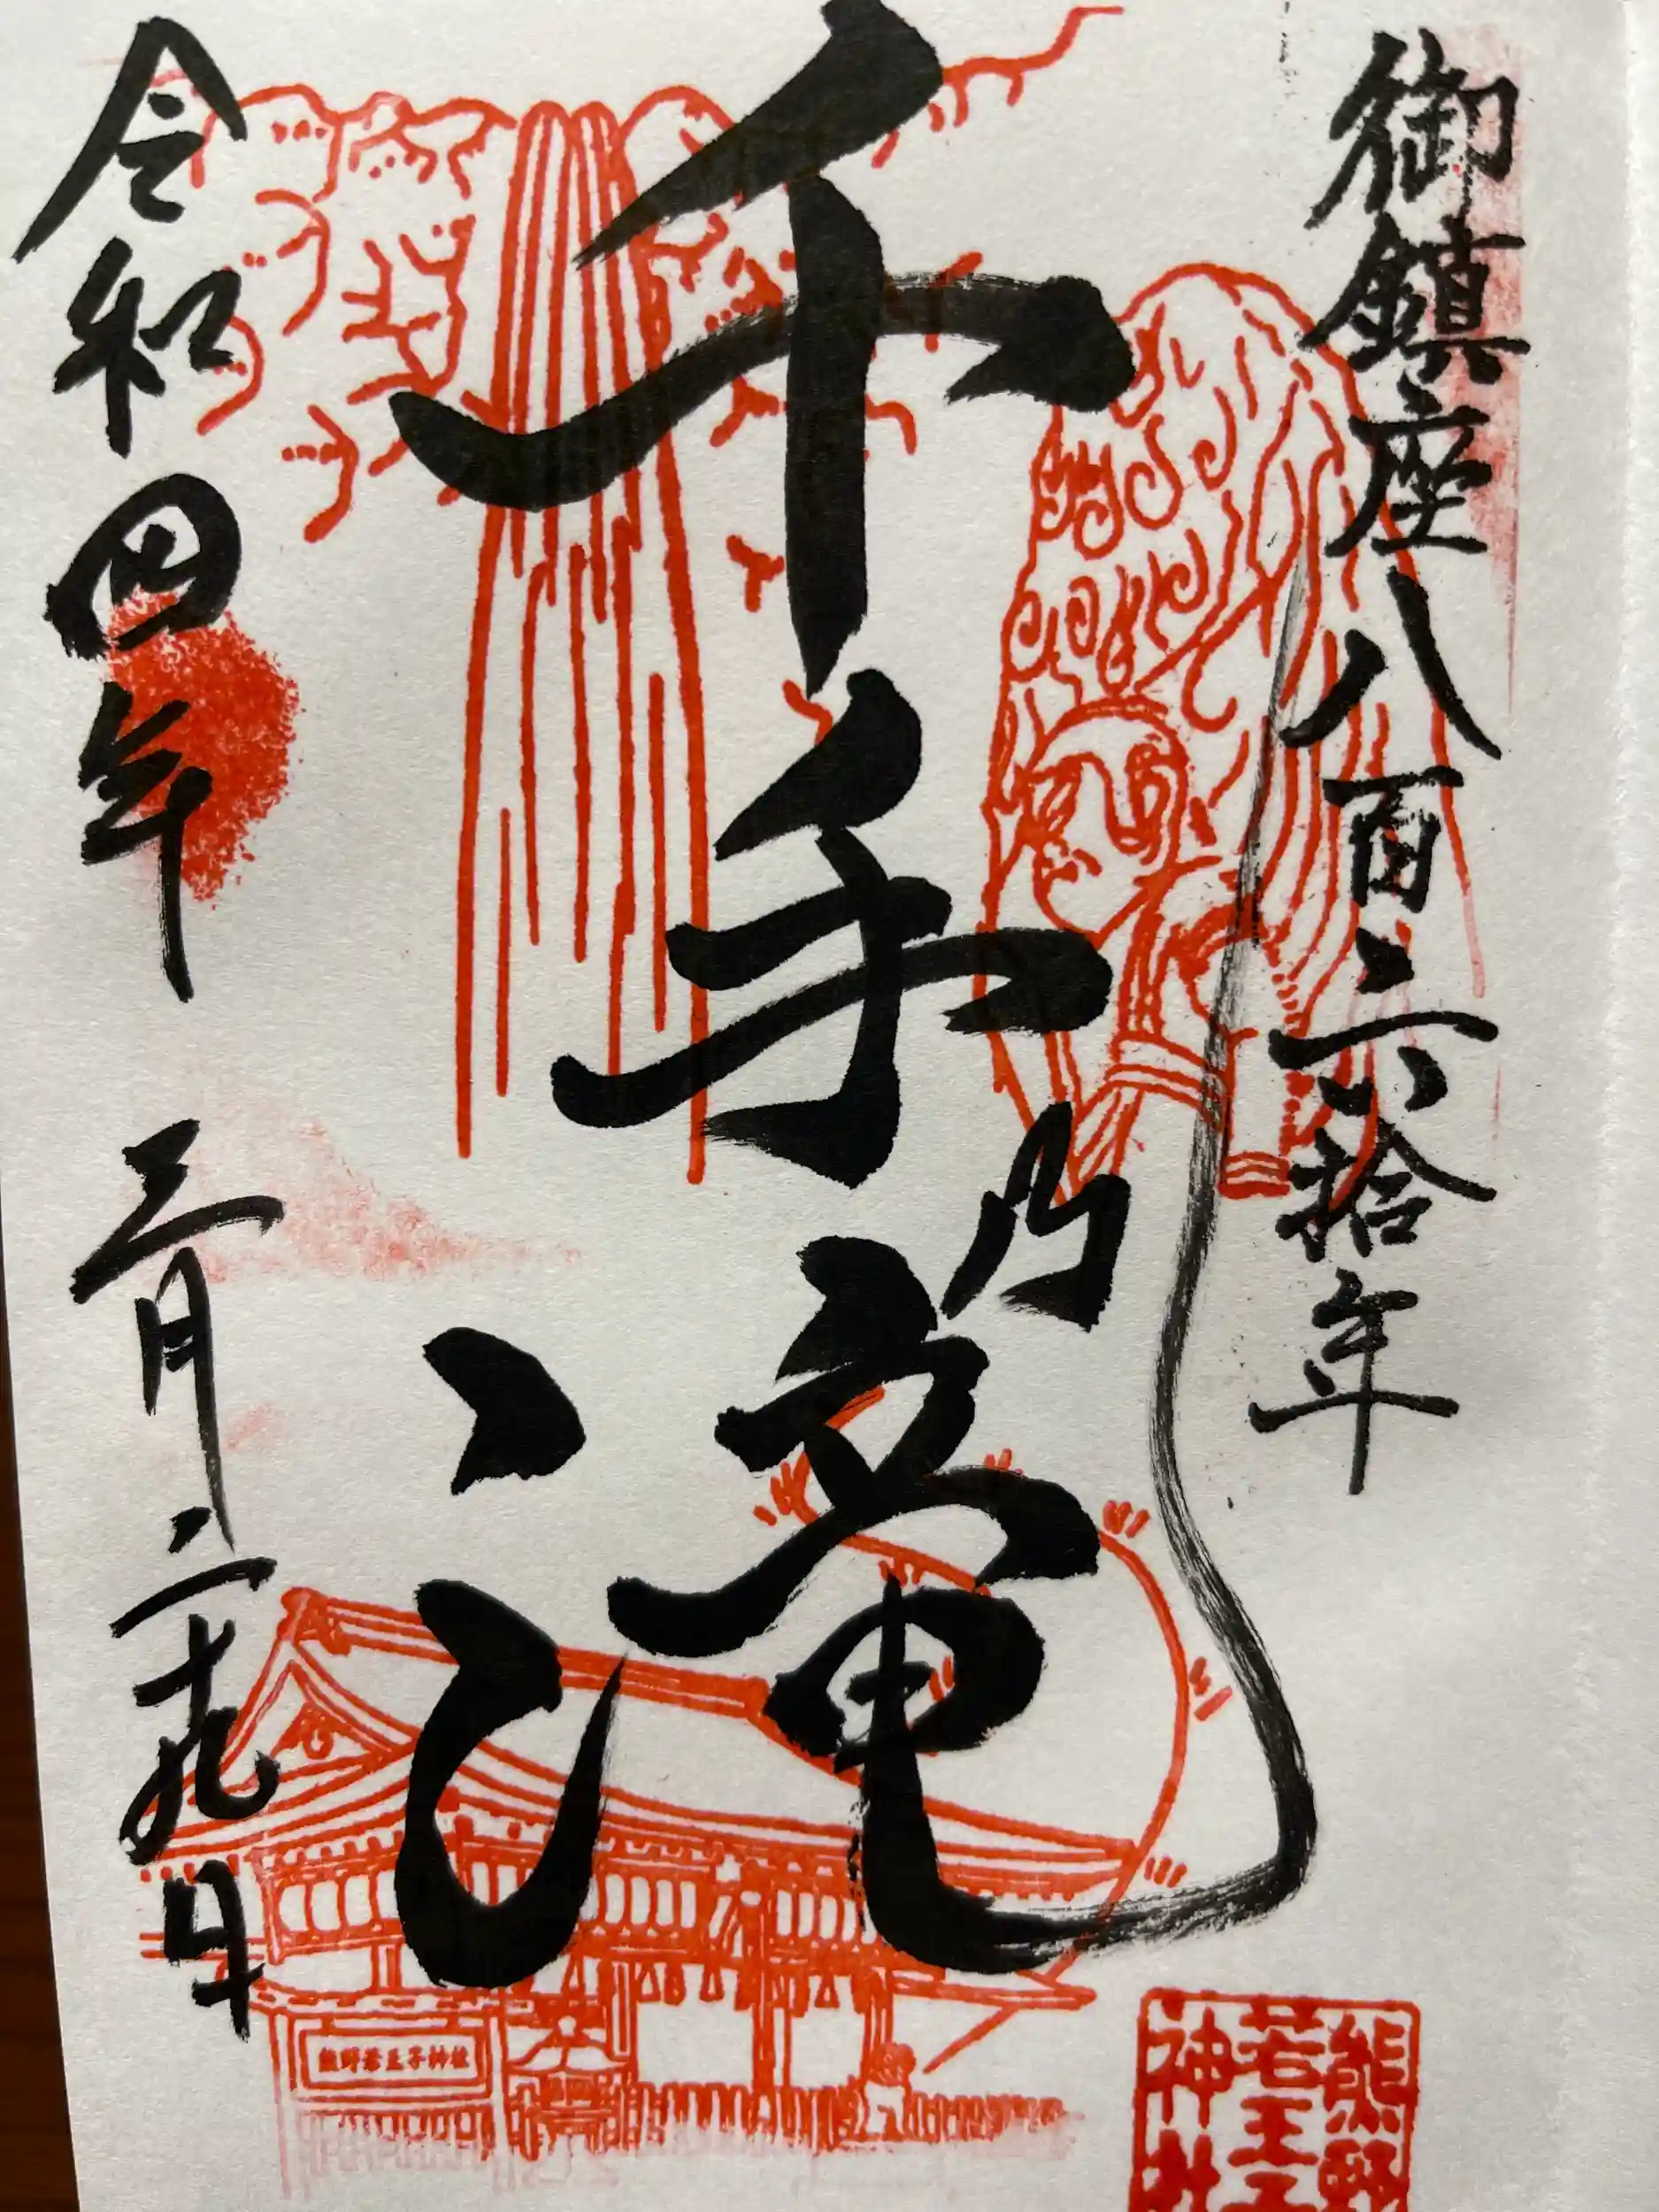 御鎮座八百六拾年
千手乃滝
令和四年 三月二十九日
熊野若王子神社
熊野
若王子
神社